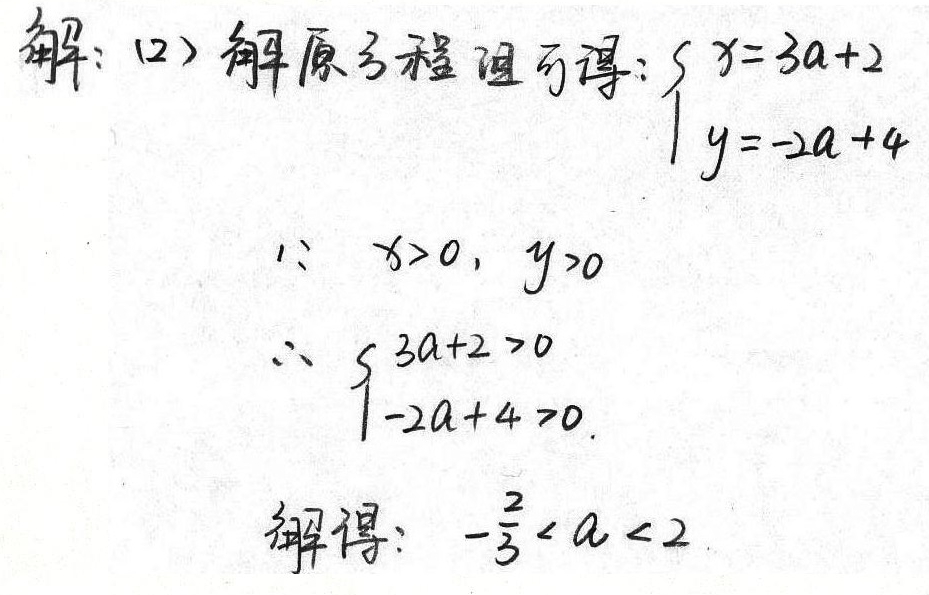 解：(2) 解原方程组可得：{ x=3a+2
y=-2a+4
∵ x>0, y>0
∴ { 3a+2>0
-2a+4>0.
解得： -2/3<a<2.